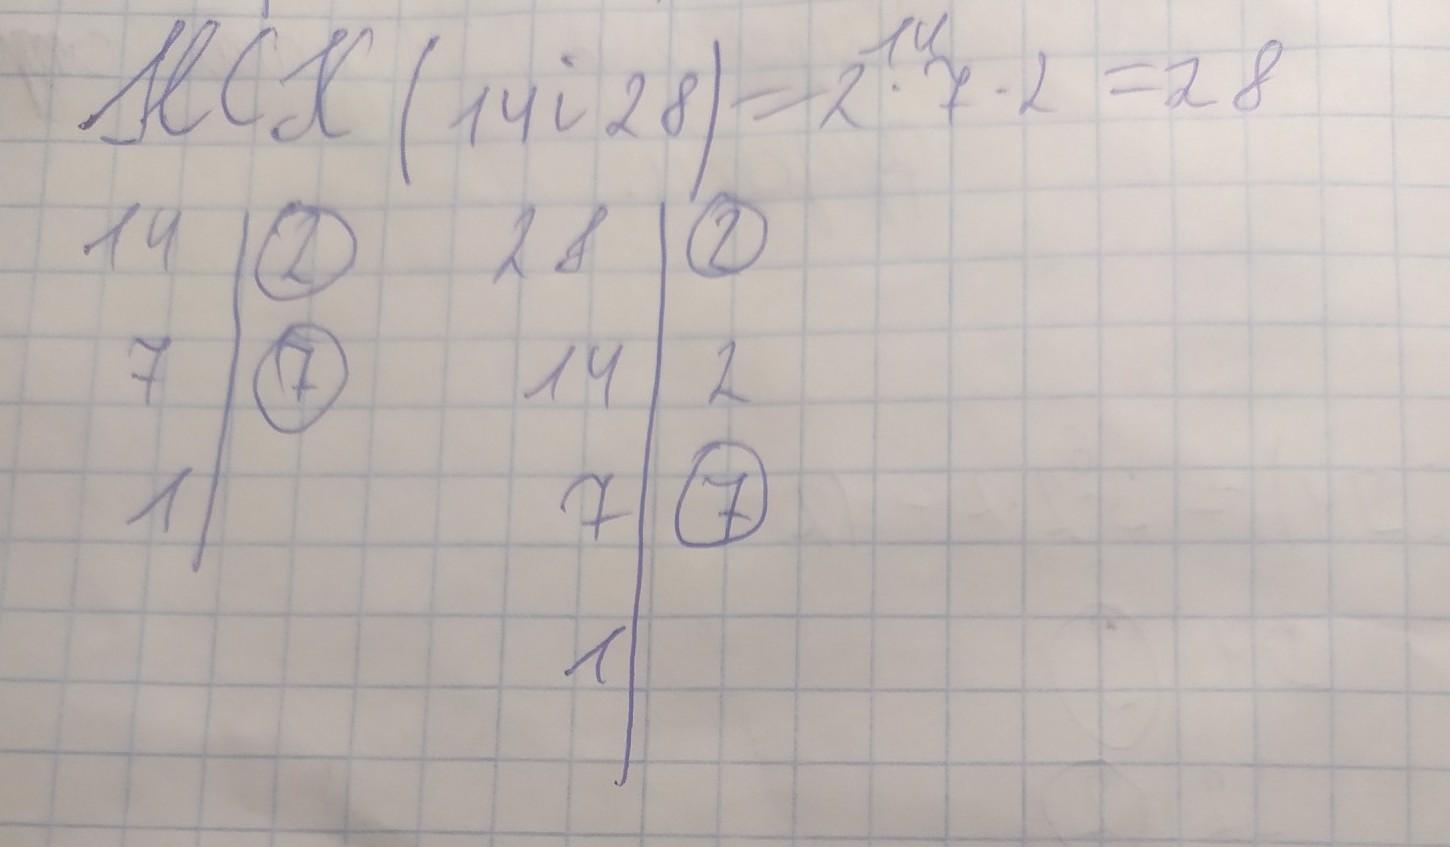 НСК (14 і 28) = 2 · 7 · 2 = 28
14
14 | 2 28 | 2
7 | 7 14 | 2
1 | 7 | 7
1 |